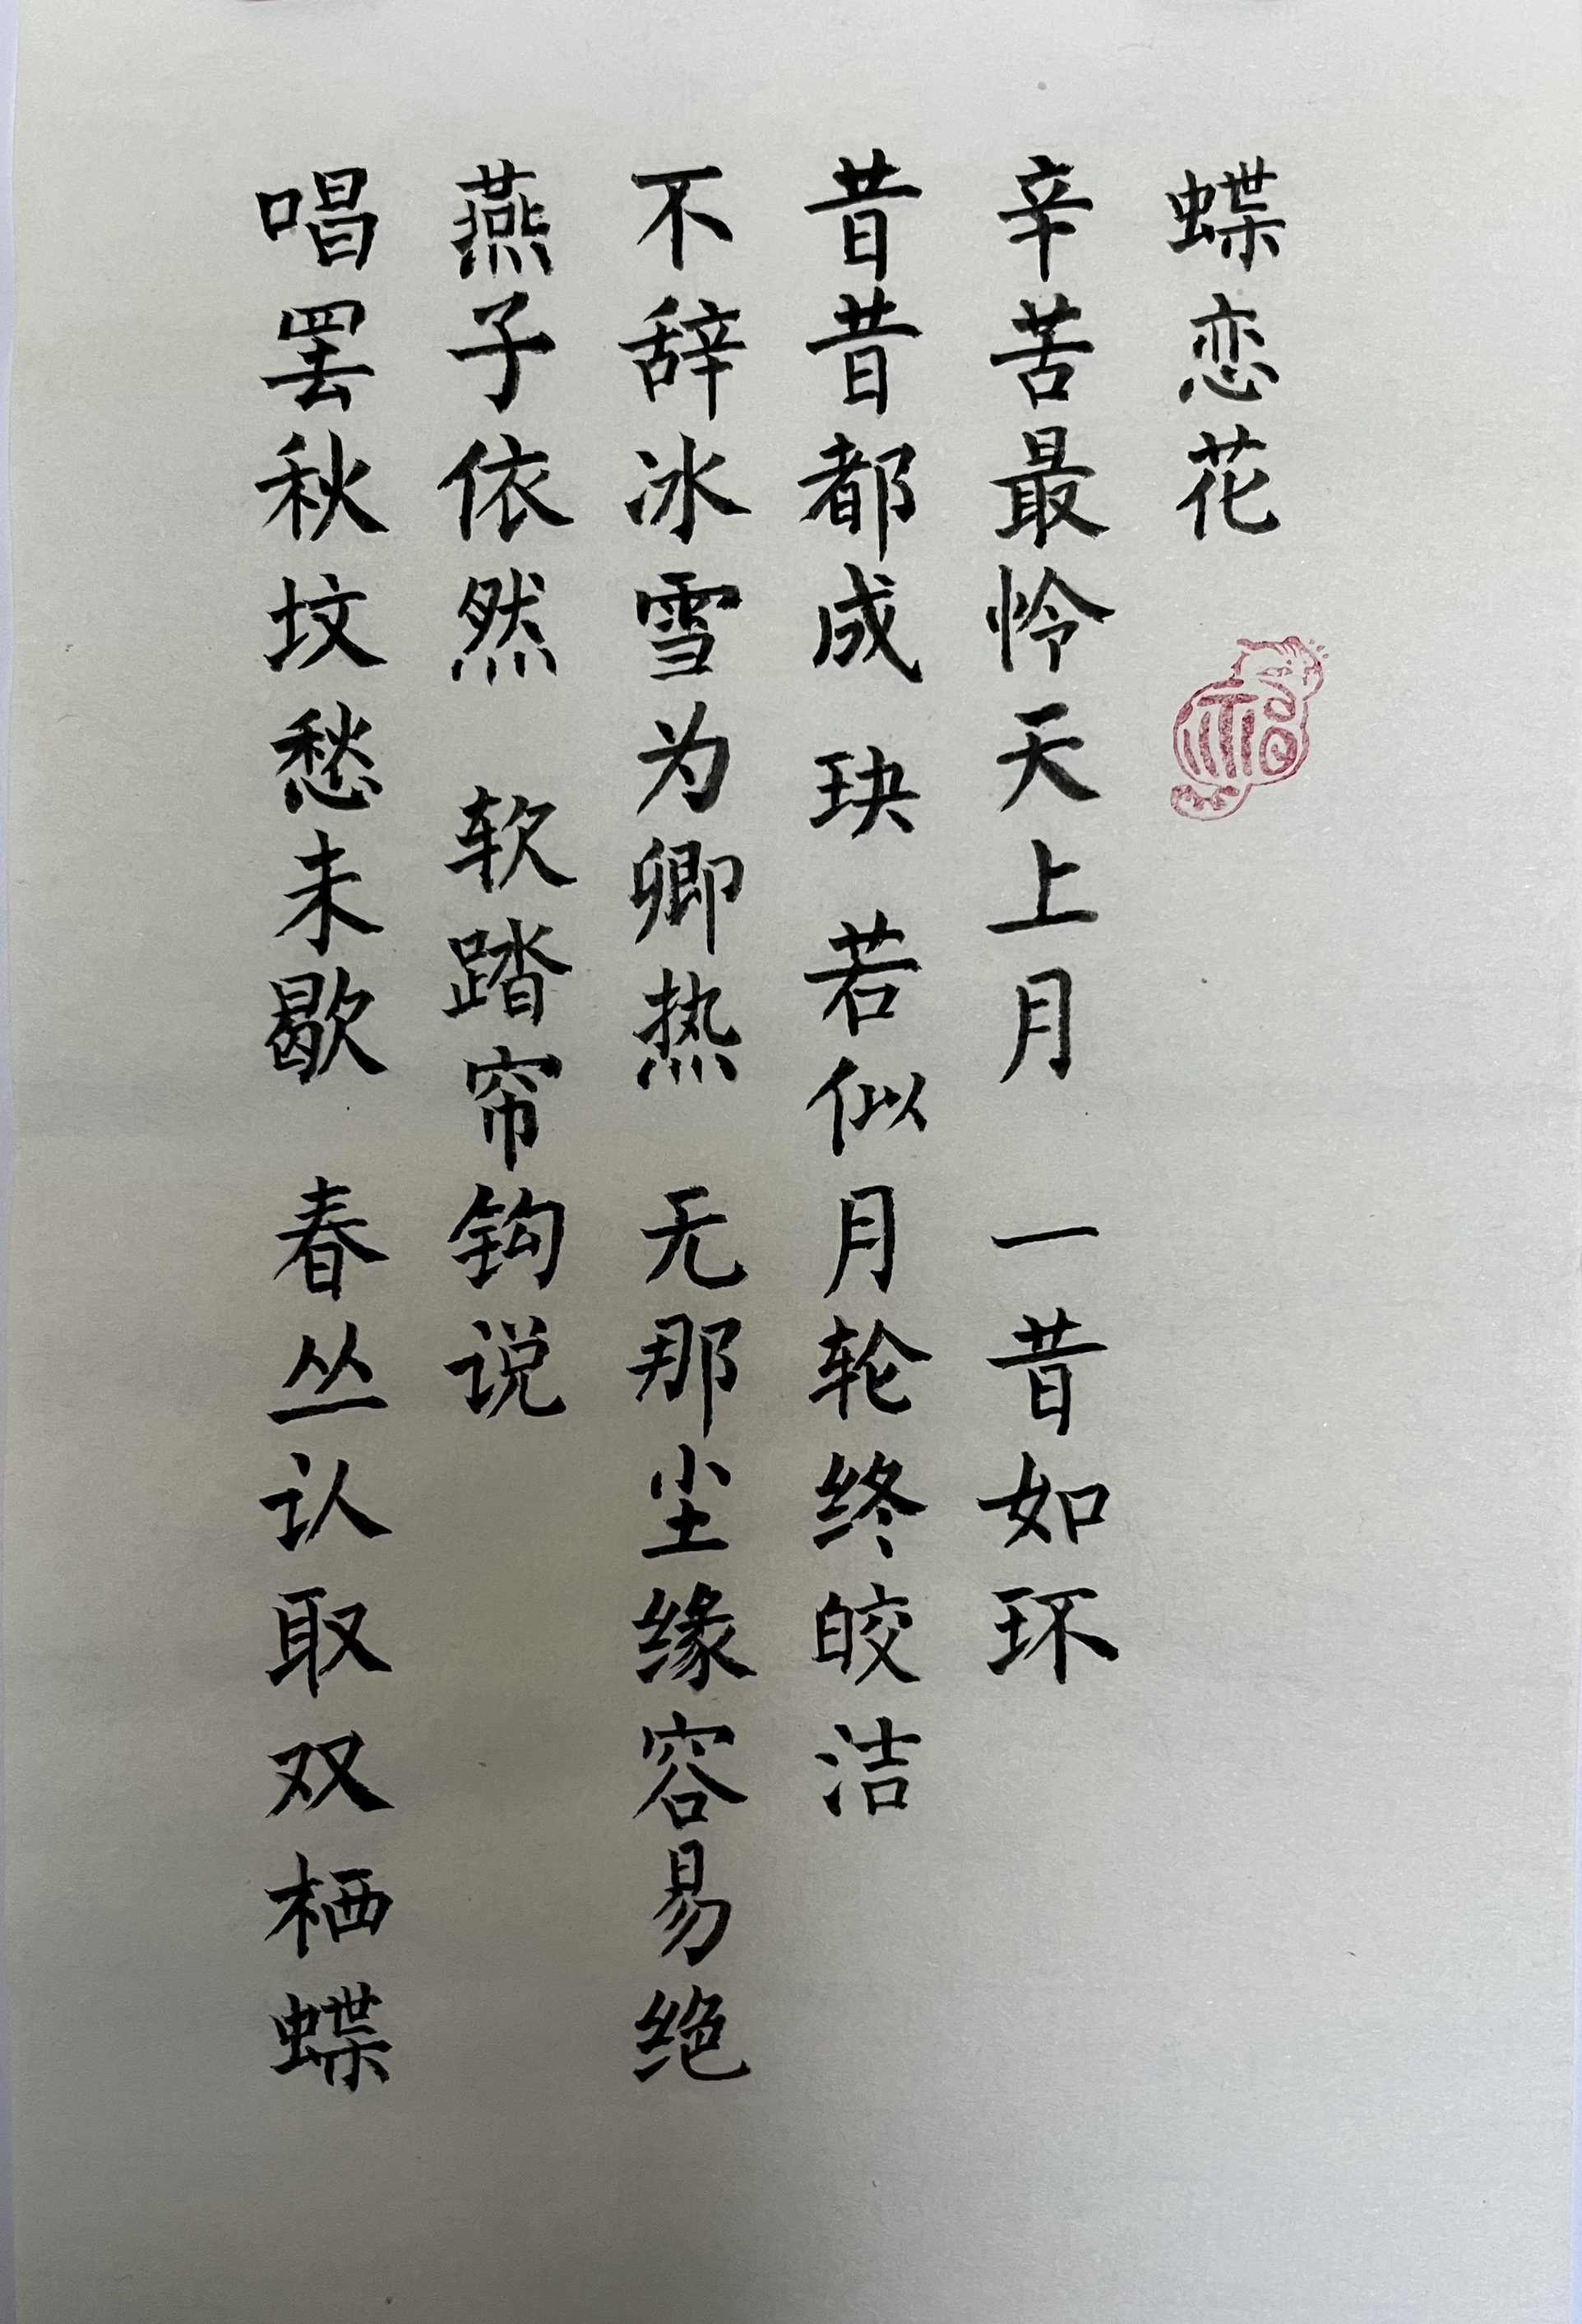 蝶恋花
辛苦最怜天上月 一昔如环
昔昔都成玦 若似月轮终皎洁
不辞冰雪为卿热 无那尘缘容易绝
燕子依然 软踏帘钩说
唱罢秋坟愁未歇 春丛认取双栖蝶
福